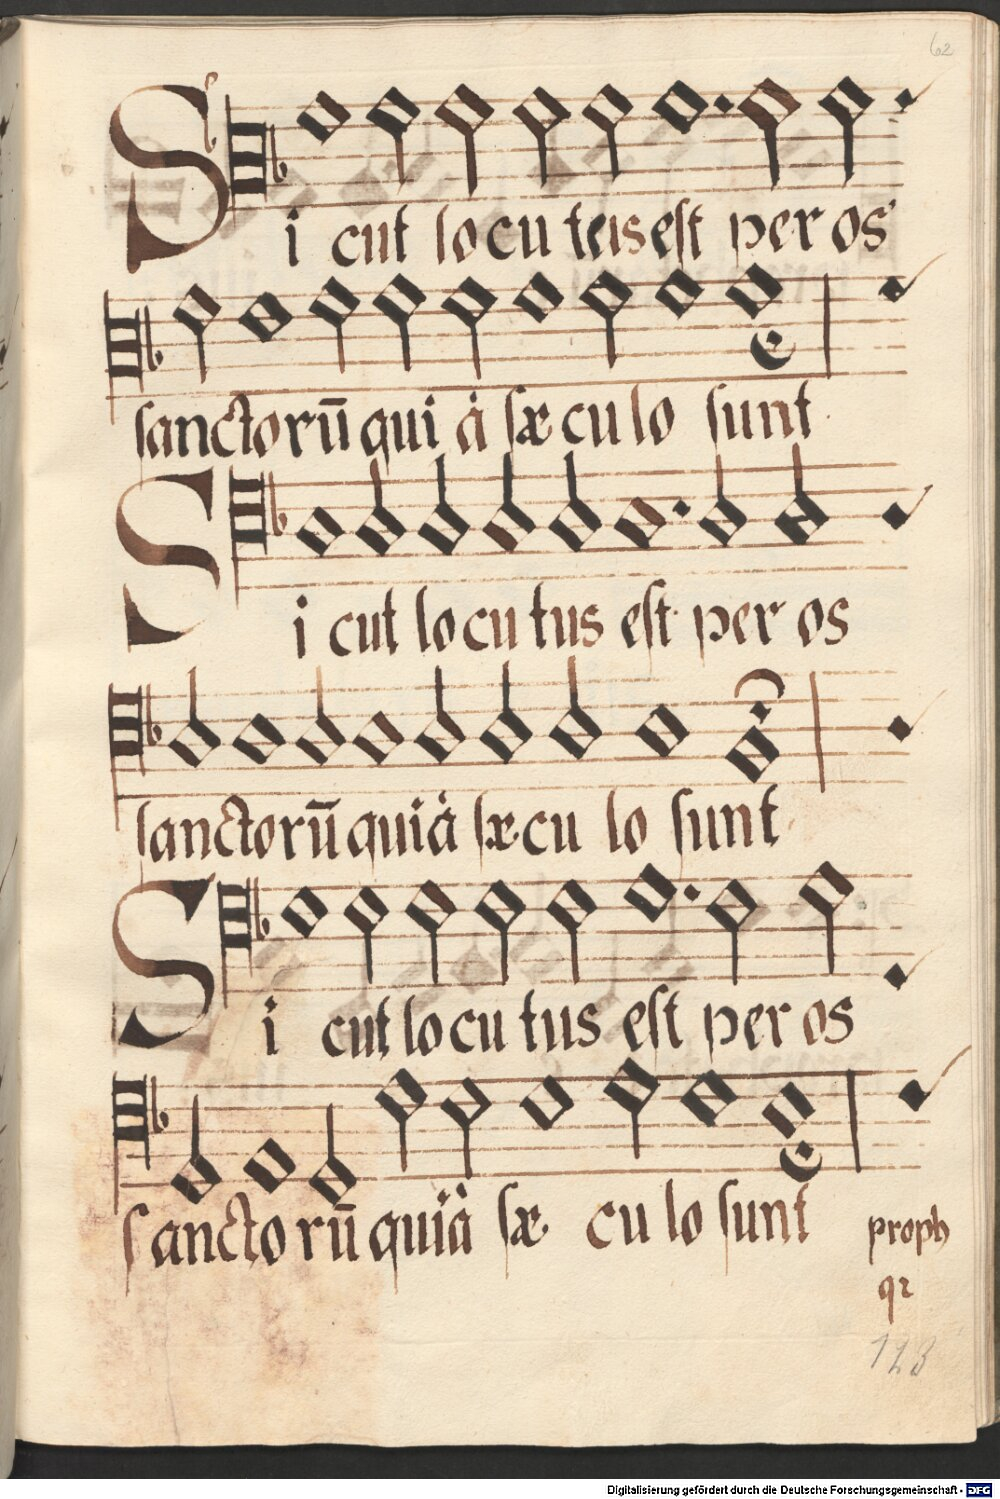 62
Si cut lo cu tus est per os
sanctorū qui à sæ cu lo sunt
Si cut lo cu tus est per os
sanctorū qui à sæ cu lo sunt
Si cut lo cu tus est per os
sancto rū qui à sæ cu lo sunt
proph
123
Digitalisierung gefördert durch die Deutsche Forschungsgemeinschaft - DFG